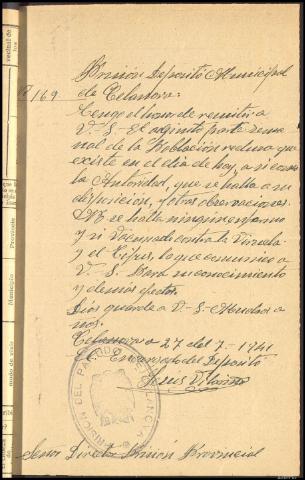 Prisión Deposito Municipal
de Celanova:
169
Tengo el honor de remitir a
V.-S.- El adjunto parte sema
nal de la Población reclusa que
existe en el dia de hoy, a si como
la Autoridad, que se halla a su
disposicion, y otras observaciones.
se halla ningun enfermo
y si Vacunado contra la Viruela
y el Tifus, lo que comunico a
V.-S. Para su conocimiento
y demás efectos.
Dios guarde a V.-S.-Muchos a
nos.
Celanova a 27 del 7-1941
El Encargado del Deposito
Señor Director Prisión Provincial
PRISION DEL PARTIDO DE CELANOVA
Provincia
Municipio